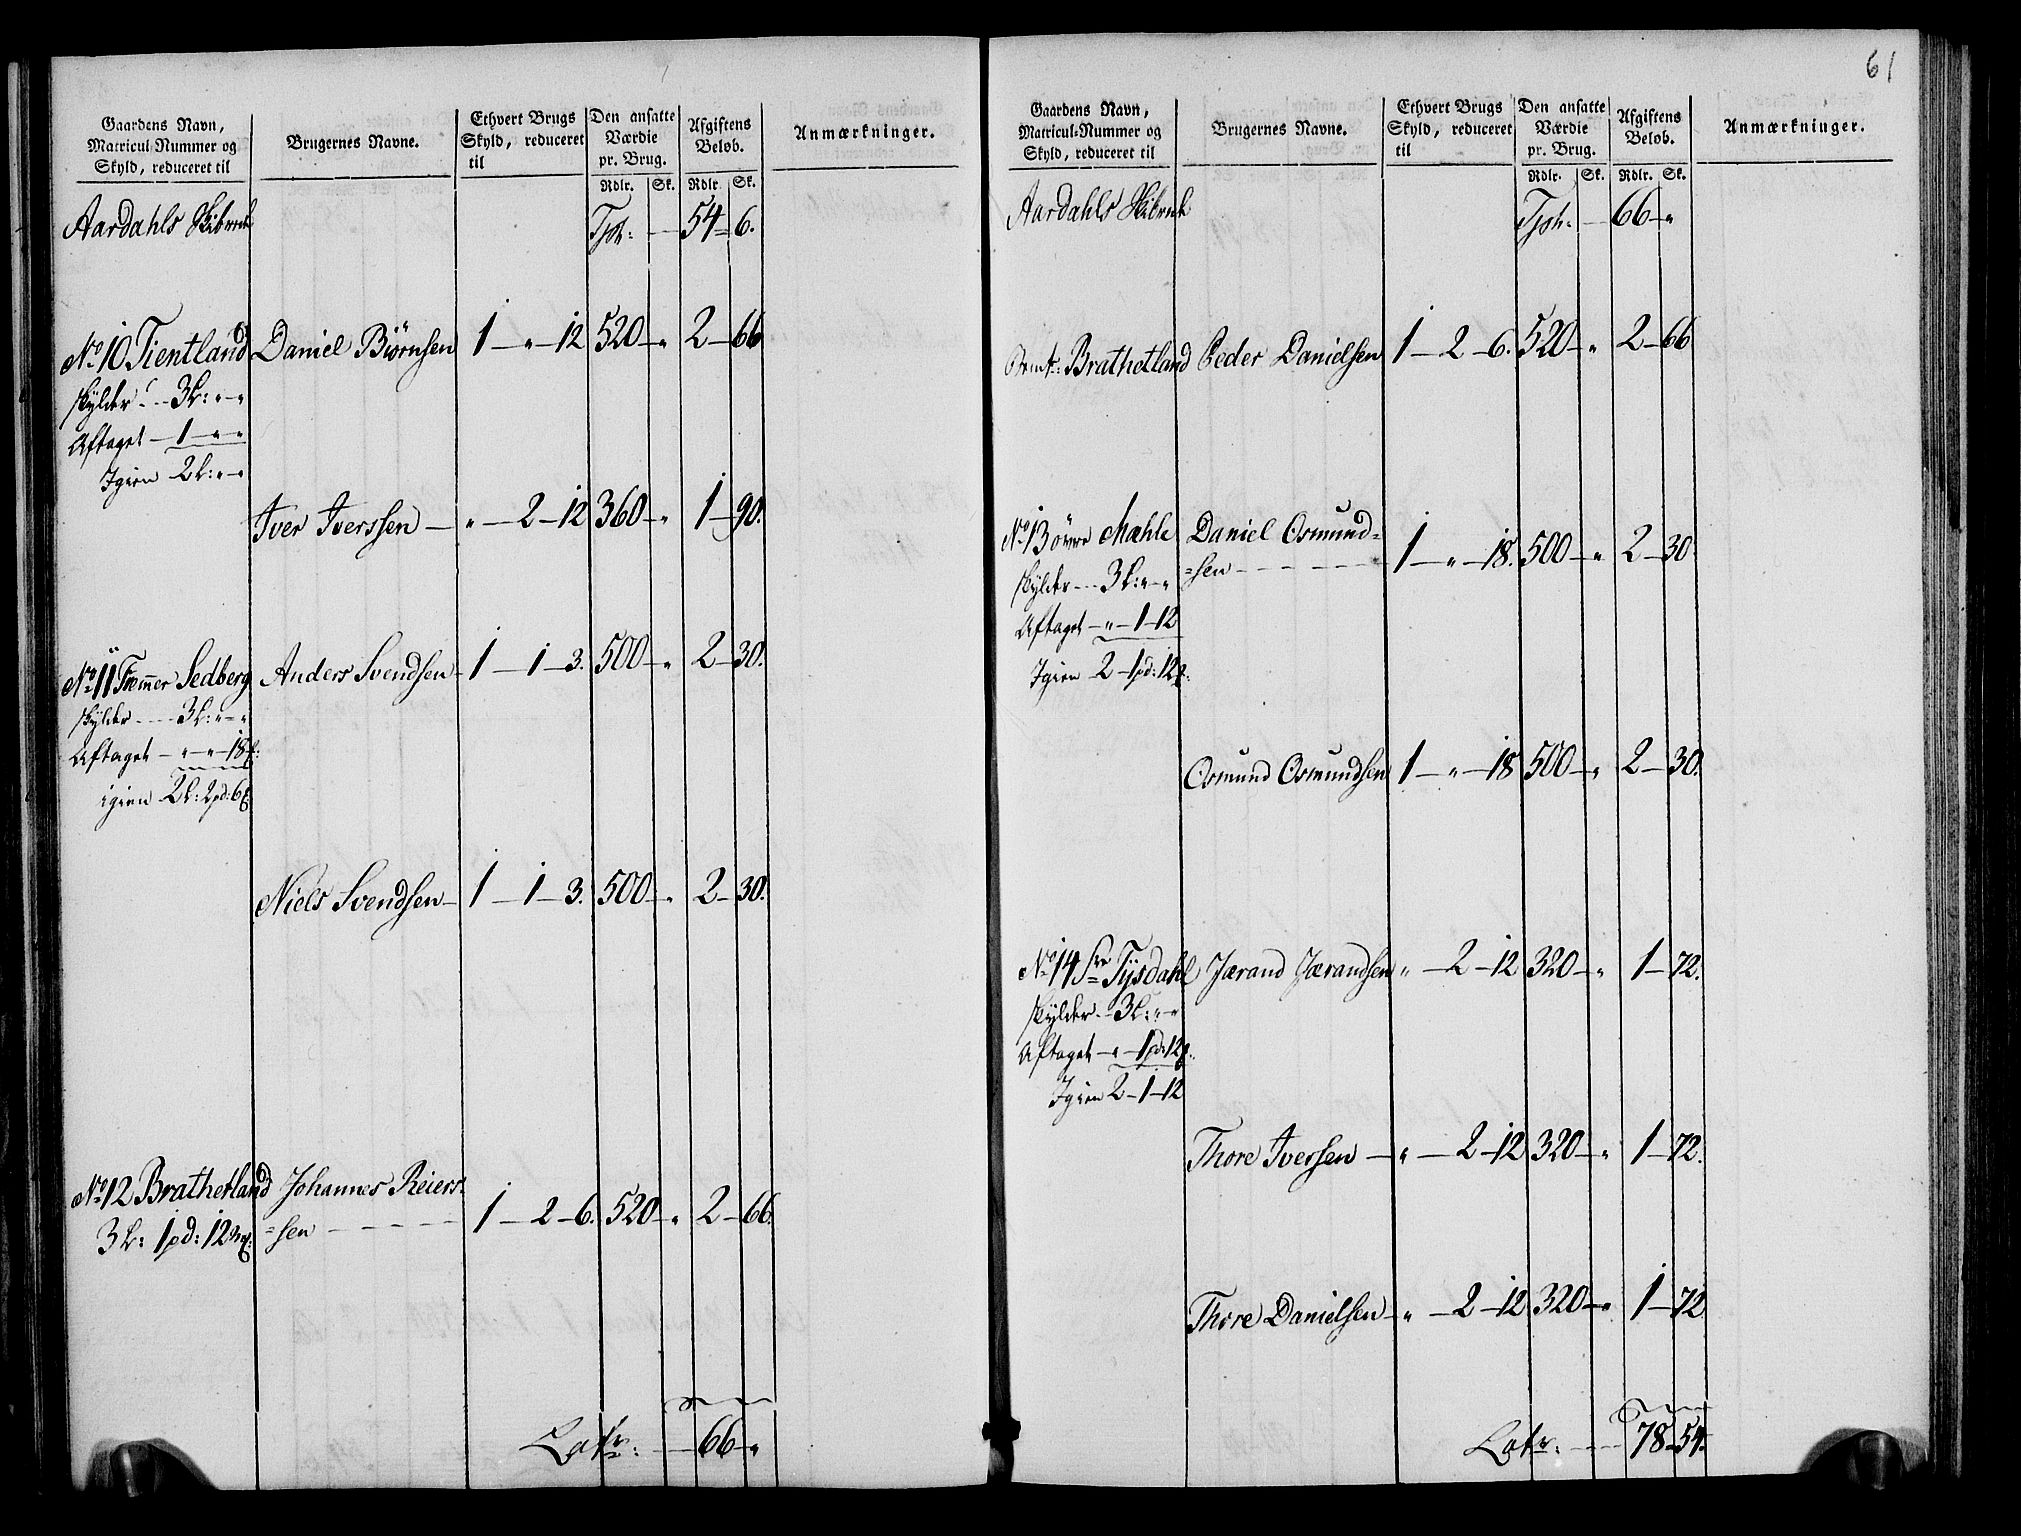 Gaardens Navn, Matricul-Nummer og Skyld, reduceret til
Brugernes Navne.
Ethvert Brugs Skyld, reduceret til
Den ansatte Værdie pr. Brug.
Afgiftens Beløb.
Anmærkninger.
Rdlr. Sk. Rdlr. Sk.
Aardahls Skibrede Tpt: — 54 — 6.
No 10 Tientland Daniel Biørnsen 1 — " — 12 520 — " 2 — 66
skylder — 3L: " — "
Aftaget — 1 — " "
Igien 2L: " — "
Iver Iverssen — " — 2 — 12 360 — " 1 — 90.
No 11 Fræmer Sedberg Anders Svendsen 1 — 1 — 3. 500 — " 2 — 30.
skylder — 3L: " — "
Aftaget — " — " — 18
igien 2L: 2pd: 6
Niels Svendsen — 1 — 1 — 3. 500 — " 2 — 30.
No 12 Brathetland Johannes Reiers-
3L: 1pd: 12 =sen — 1 — 2 — 6. 520 — " 2 — 66.
Latr: — 66 — "
61
Gaardens Navn, Matricul-Nummer og Skyld, reduceret til
Brugernes Navne.
Ethvert Brugs Skyld, reduceret til
Den ansatte Værdie pr. Brug.
Afgiftens Beløb.
Anmærkninger.
Rdlr. Sk. Rdlr. Sk.
Aardahls Skibrede Tpt: — 66 — "
Brathetland Peder Danielsen 1 — 2 — 6. 520 — " 2 — 66
No 13 øvre Mæhle Daniel Osmund=
=sen — 1 — " — 18. 500 — " 2 — 30
skylder — 3L: " — "
Aftaget — " — 1 — 12
Igien 2 — 1pd: 12
Osmund Osmundsen 1 — " — 18 500 — " 2 — 30.
No 14 Tÿsdahl Jærand Jærandsen " — 2 — 12 320 — " 1 — 72.
skylder — 3L: " — "
Aftaget — " — 1pd: 12
Igien 2 — 1 — 12
Thore Iversen — " — 2 — 12 320 — " 1 — 72.
Thore Danielsen — " — 2 — 12 320 — " 1 — 72
Latr: — 78 — 54